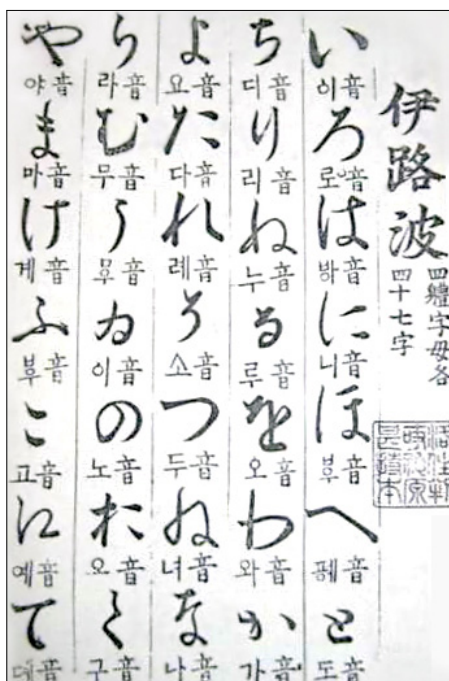 伊路波
四軆字母各
四十七字
い 이音 ろ 로音 は 바音 に 니音 ほ へ 폐音 と 도音
ち 디音 り 리音 ぬ 누音 る 루音 を 오音 わ 와音 か 가音
よ 요音 た 다音 れ 례音 そ 소音 つ 두音 ね 녀音 な 나音
ら 라音 む 무音 う ゐ 이音 の 노音 お 오音 く 구音
や 야音 ま 마音 け 계音 ふ 부音 こ 고音 え 예音 て 뎨音